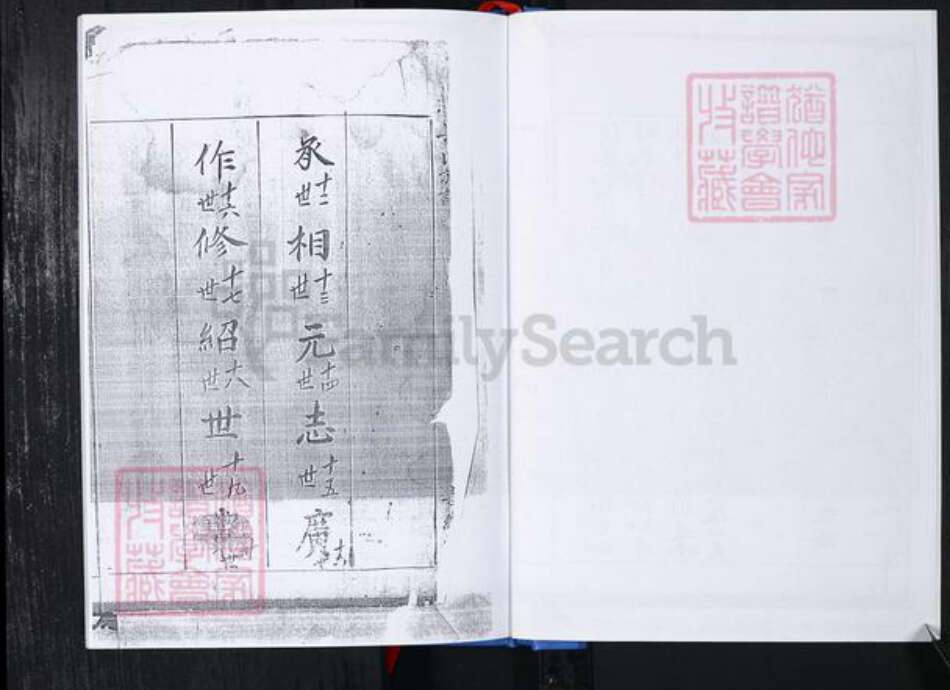 十二世 相 十三世 元 十四世 志 十五世 廣
作 十六世 修 十七世 紹 十八世 世 十九世
猶他家
譜學會
收藏
猶他家
譜學會
收藏
FamilySearch